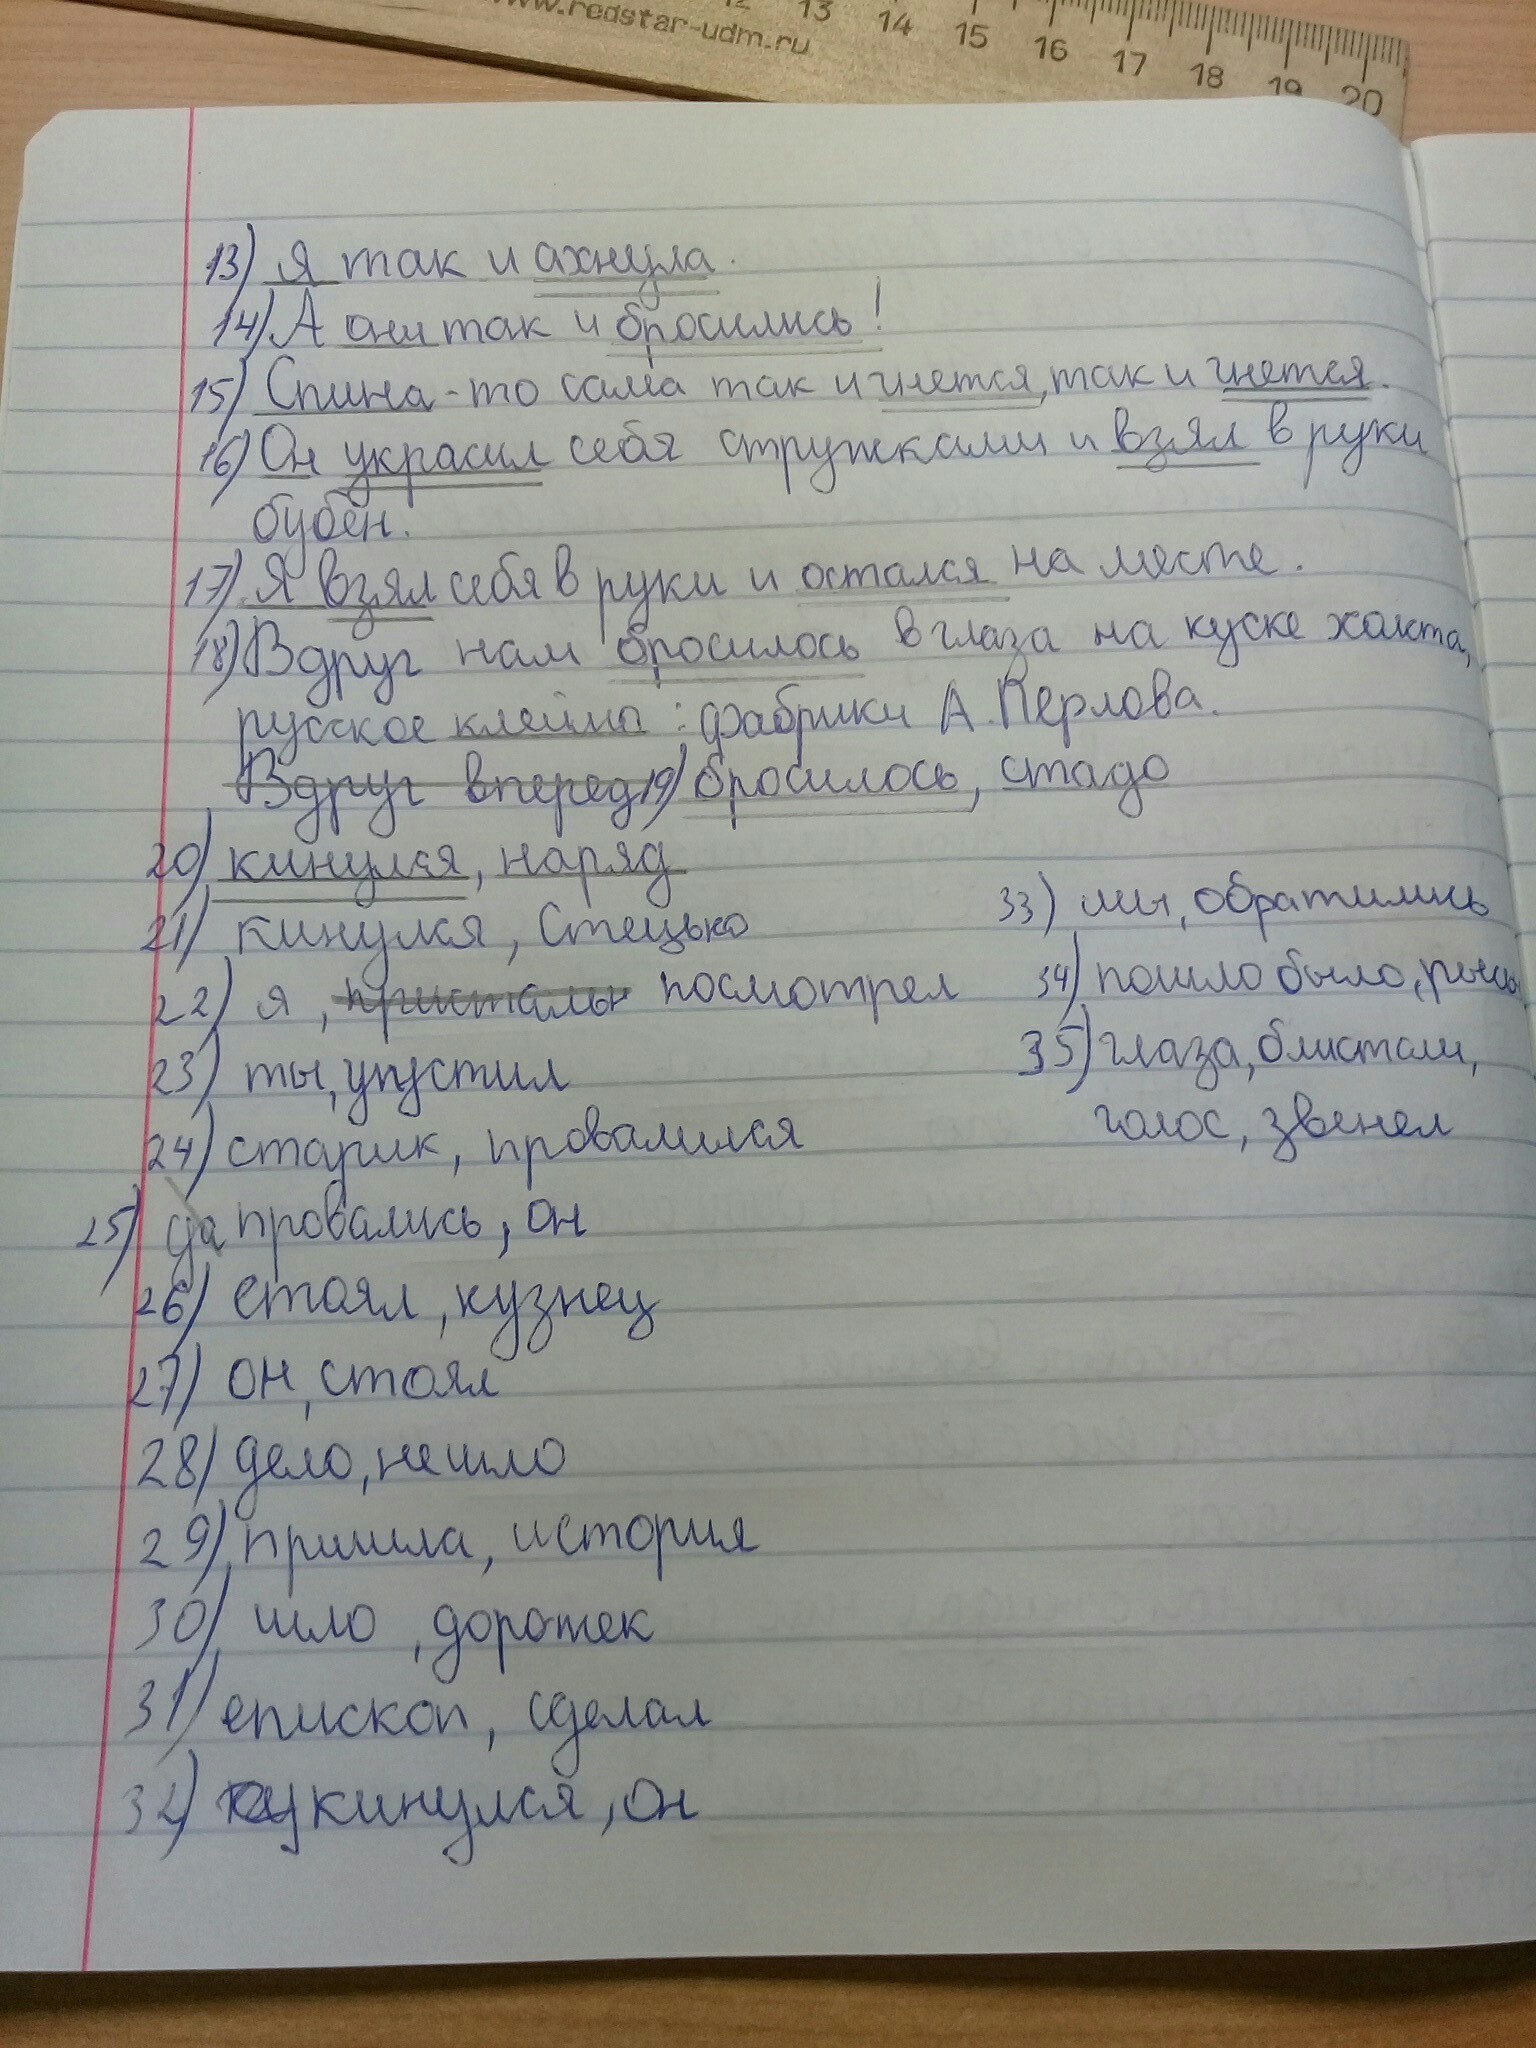 www.redstar-udm.ru
12 13 14 15 16 17 18 19 20
13) Я так и ахнула.
14) А они так и бросились!
15) Спина-то сама так и гнется, так и гнется.
16) Он украсил себя стружками и взял в руки
бубен.
17) Я взял себя в руки и остался на месте.
18) Вдруг нам бросилось в глаза на куске холста,
русское клеймо: фабрики А. Перлова.
Вдруг вперед 19) бросилось, стадо
20) кинулся, наряд
21) кинулся, Стецько
22) я, присталь посмотрел
23) ты, упустил
24) старик, провалился
25) да провались, он
26) стоял, кузнец
27) он, стоял
28) дело, не шло
29) пришла, история
30) шло, дорожек
31) епископ, сделал
32) кинулся, он
33) мы, обратились
34) пошло было,
35) глаза, блистали,
голос, звенел